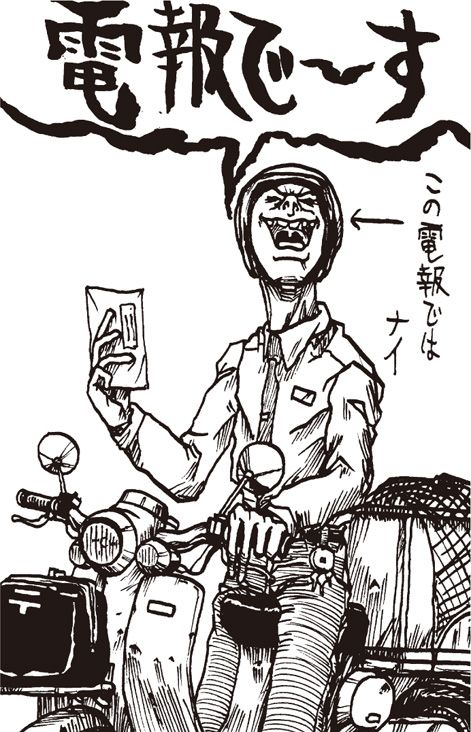 電報で〜す
この電報では
ナイ
〒